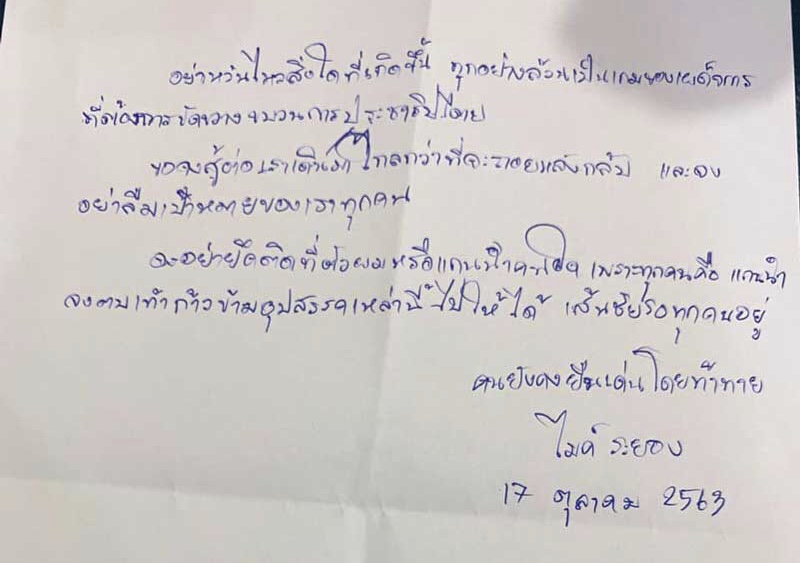 อย่าหวั่นไหวสิ่งใดที่เกิดขึ้น ทุกอย่างล้วนเป็นเกมของเผด็จการ
ที่ต้องการขัดขวางขบวนการประชาธิปไตย
ขอจงสู้ต่อ เราเดินมาไกลกว่าที่จะถอยหลังกลับ และจง
อย่าลืมเป้าหมายของเราทุกคน
จงอย่ายึดติดที่ตัวผมหรือแกนนำคนใด เพราะทุกคนคือ แกนนำ
จงตบเท้าก้าวข้ามอุปสรรคเหล่านี้ไปให้ได้ เส้นชัยรอทุกคนอยู่
คนยังคงยืนเด่นโดยท้าทาย
ไมค์ ระยอง
17 ตุลาคม 2563